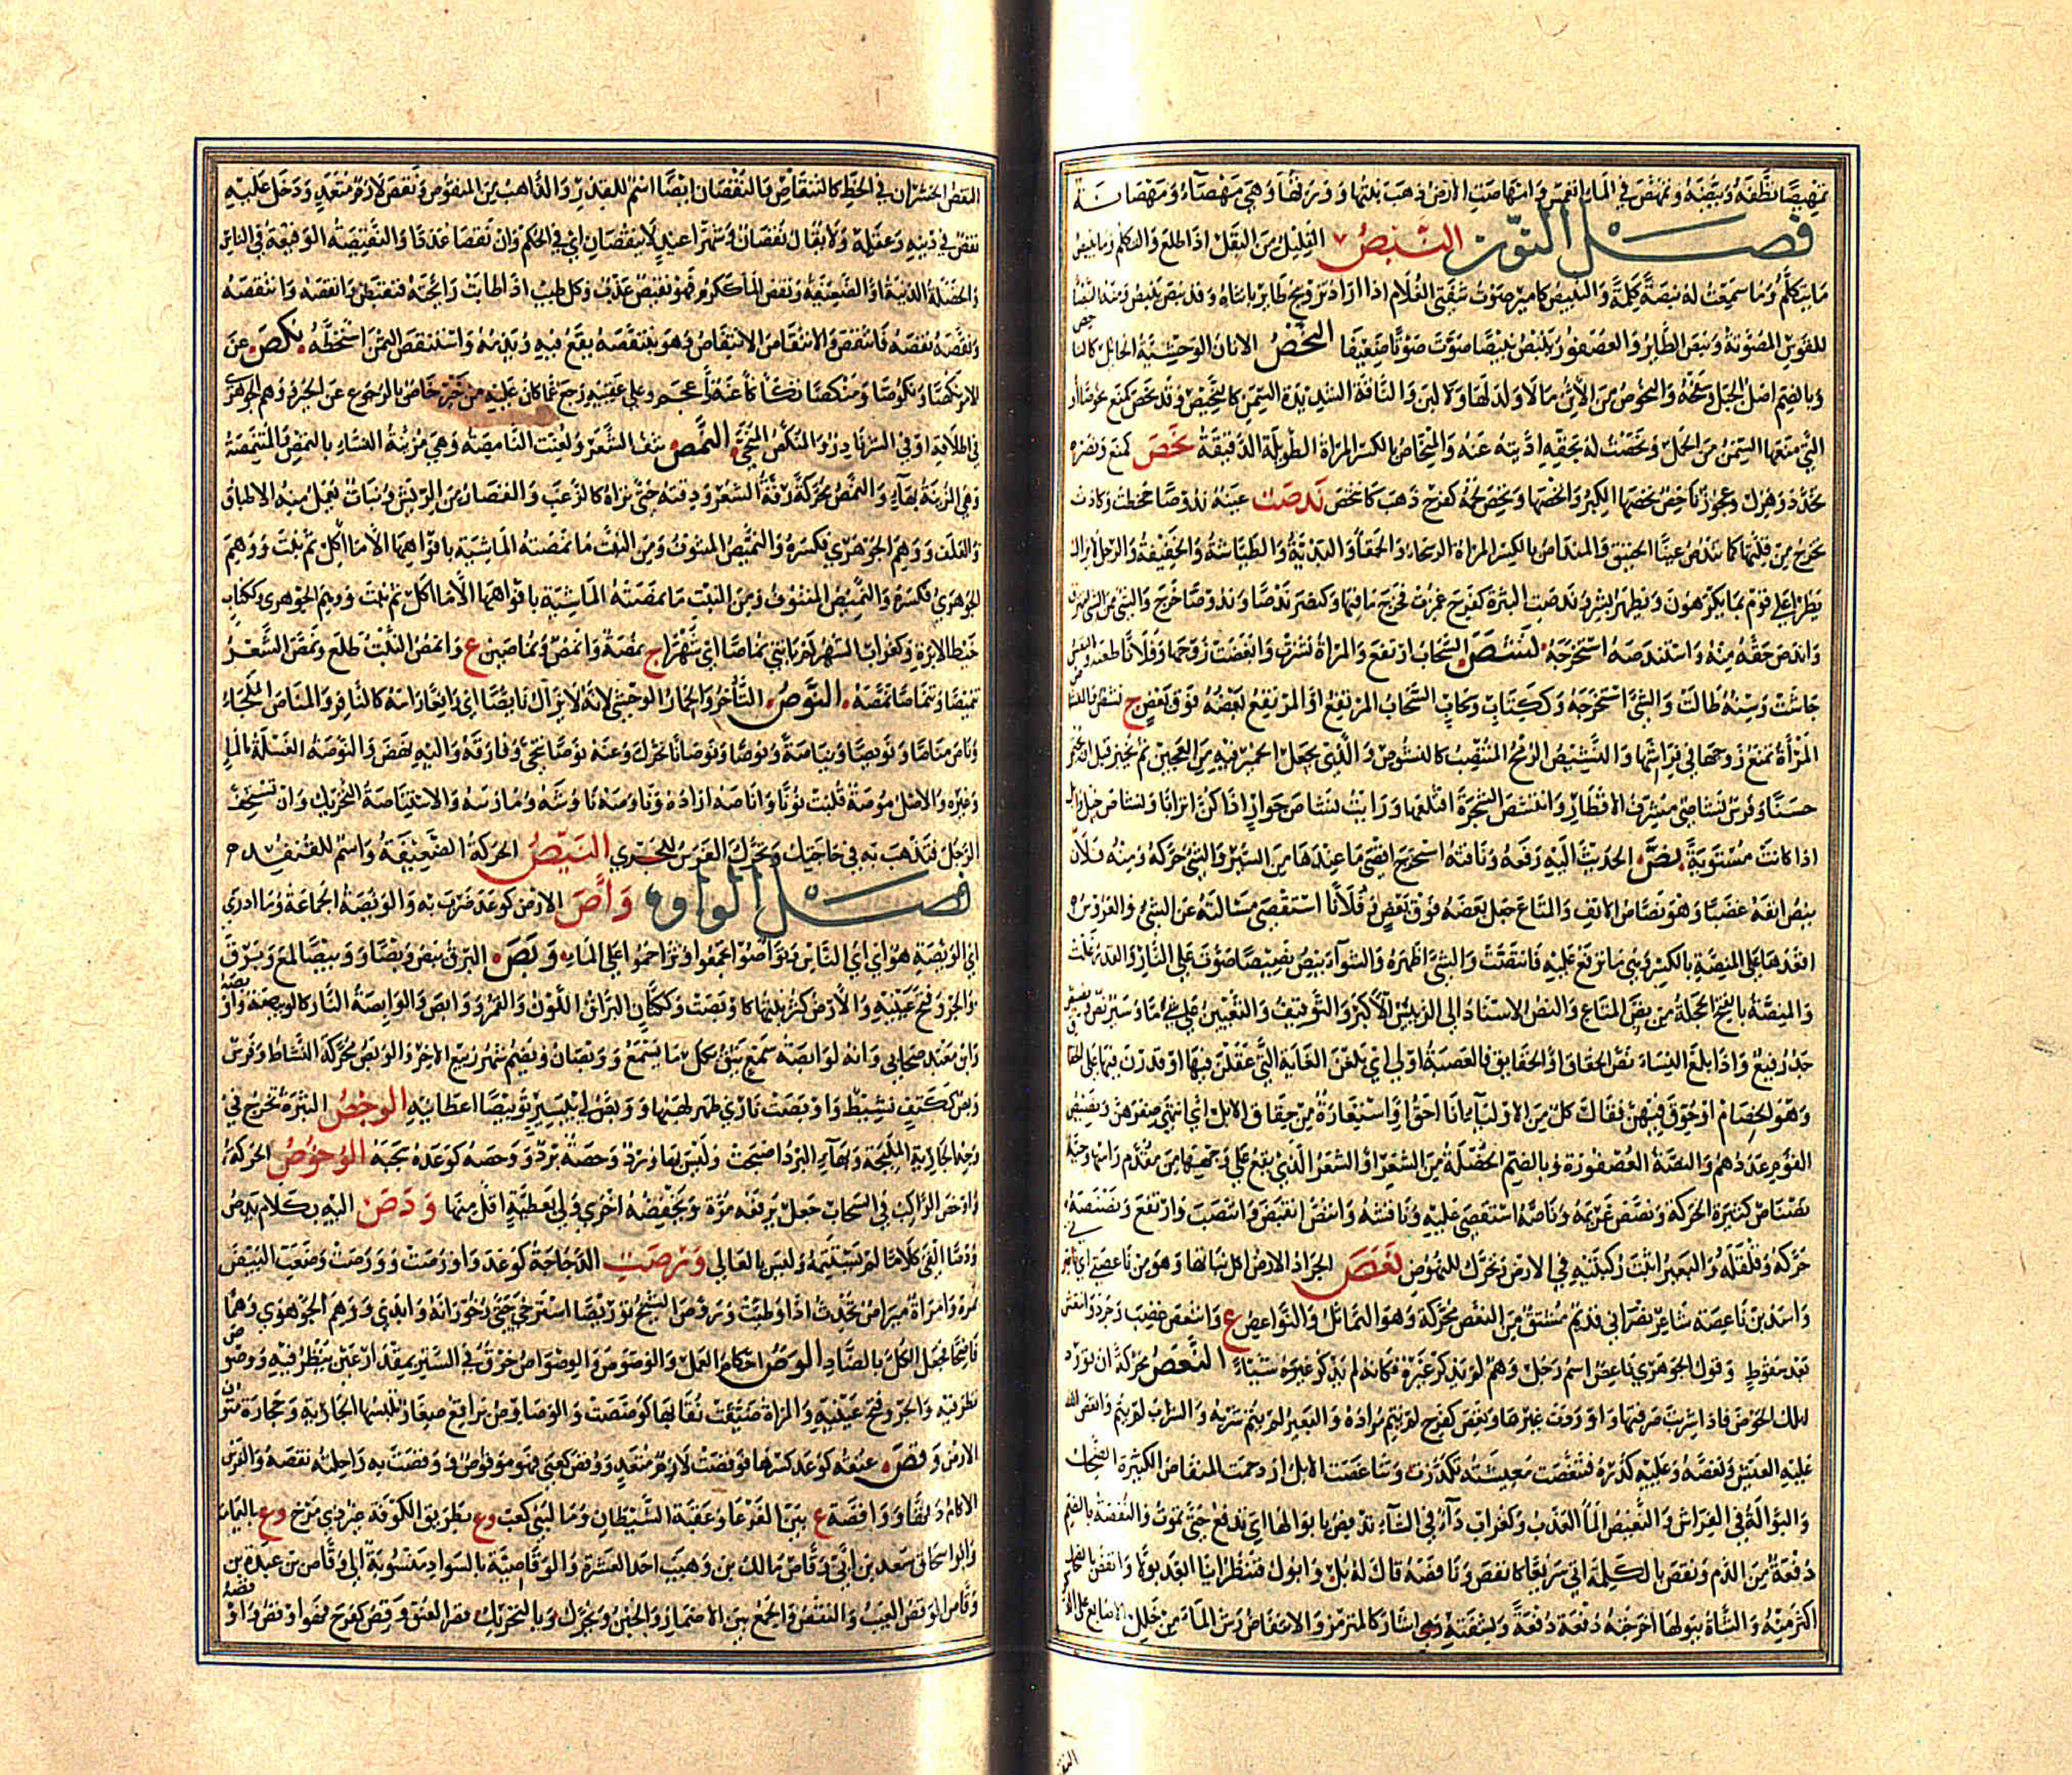 تمهيصا نظفه وبيضه وتمهص في الماء انغمس وامتهاصت الارض ذهب نبتها وورقها وهي مهصاء ومهصانة
فصل النون النبص القليل من البقل اذا طلع والتكلم وما ينبص
ما يتكلم وما سمعت له نبصة كلمة والنبيص كامير صوت شفتي الغلام اذا اراد تزويج طاير بانثاه وقد نبص ينبص ومنه النبصاء
للقوس المصوتة ونبص الطاير والعصفور ينبص نبيصا صوت صوتا ضعيفا النحص الاتان الوحشية الحائل كالناحص
وبالضم اصل الجبل وسفحه والنحوص من الاتن ما لا ولد لها ولا لبن والناقة الشديدة السمن كالنحيص وقد نحص كمنع نحوصا او
التي منعها السمن من الحمل ونحصت له بحقه اديته عنه والمنحاص بالكسر المراة الطويلة الدقيقة نخص كمنع ونصر
تخدد وهزل وعجوز ناخص نخصها الكبر وانخصها ونخص لحمه كفرح ذهب كانتخص ندصت عينه ندوصا جحظت وكادت
تخرج من قلتها كما تندص عين الخنيق والمنداص بالكسر المراة الرسحاء والحمقاء والبذية والطياشة والخفيفة والرجل لا يزال
يطرا على قوم بما يكرهون ويظهر بشر وندصت البثرة كفرح غمزت فخرج ما فيها وكنصر ندصا وندوصا خرج والشي من الشي امترق
واندص حقه منه واستندصه استخرجه نشص السحاب ارتفع والمراة نشزت وابغضت زوجها وفلانا طعنه والنفس
جاشت وسنه طالت والشي استخرجه وككتاب وسحاب السحاب المرتفع او المرتفع بعضه فوق بعض ج نشص
المراة تمنع زوجها في فراشها والنشيص الرمح المنتصب كالنشوص والذي يجعل الخمير فيه من العجين ثم يخبز قبل ان يختمر
حسنا وفرس نشاصي مشرف الاقطار وانتشص الشجرة اقتلعها ورايت نشاص جوار اذا كن اترابا ونشاص خيل
اذا كانت مستوية نص الحديث اليه رفعه وناقته استخرج اقصى ما عندها من السير والشي حركه ومنه فلان
ينص انفه غضبا وهو نصاص الانف والمتاع جعل بعضه فوق بعض وفلانا استقصى مسالته عن الشي والعروس
اقعدها على المنصة بالكسر وهي ما ترفع عليه فانتصت والشي اظهره والشواء ينص نصيصا صوت على النار والقدر غلت
والمنصة بالفتح الحجلة من نص المتاع والنص الاسناد الى الرئيس الاكبر والتوقيف والتعيين على شي ما وسير نص ونصيص
جد رفيع واذا بلغ النساء نص الحقاق او الحقايق فالعصبة اولى اي بلغن الغاية التي عقلن فيها او قدرن فيها على الحقاق
وهو الخصام او حوق فيهن فقال كل من الاولياء انا احق او استعارة من حقاق الابل اي انتهى صغرهن ونصيص
القوم عددهم والنصة العصفورة وبالضم الخصلة من الشعر او الشعر الذي يقع على وجهها من مقدم راسها وحية
نصناص كثيرة الحركة ونصص غريمه وناصه استقصى عليه وناقشه وانتص انقبض وانتصب وارتفع ونصنصه
حركه وقلقله والبعير اثبت ركبتيه في الارض وتحرك للنهوض نعص الجراد الارض اكل نباتها وهو من ناعصتي اي ناصرتي
واسد بن ناعصة شاعر نصراني قديم مشتق من النعص محركة وهو التمايل والنواعص ع وانتعص غضب وحرد وانتعش
بعد سقوط وقول الجوهري ناعص اسم رجل وهم لم يذكر غيره فكانه لم يذكر غيره شيئا النغص محركة ان تورد
ابلك الحوض فاذا شربت صرفتها واوردت غيرها ونغص كفرح لم يتم مراده والبعير لم يتم شربه والشراب لم يتم وانغص الله
عليه العيش ونغصه وعليه كدره فتنغصت معيشته تكدرت وتناغصت الابل ازدحمت المنفاص الكثيرة الضحك
والبوالة في الفراش والنفيص الماء العذب وكغراب داء في الشاء تنفص بابوالها اي تدفع حتى تموت والنفصة بالضم
دفعة من الدم ونفص بالكلمة اتى سريعا كانفص ونافصه قال له بل وابول فننظر اينا ابعد بولا وانفص بالضحك
اكثر منه والشاة ببولها اخرجته دفعة دفعة وبشفتيه اشار كالمترمز والانتفاص رش الماء من خلل الاصابع على الذكر
النقص الخسران في الحظ كالتنقاص والنقصان ايضا اسم للقدر الذاهب من المنقوص ونقص لازم متعد ودخل عليه
نقص في دينه وعقله ولا يقال نقصان وشهرا عيد لا ينقصان اي في الحكم وان نقصا عددا والنقيصة الوقيعة في الناس
والخصلة الدنية او الضعيفة ونقص الماء ككرم فهو نقيص عذب وكل طيب اذا طابت رايحته فنقيص وانقصه وانتقصه
ونقصه نقصه فانتقص والانتقاص الانتقاص وهو ينتقصه يقع فيه ويذمه واستنقص الثمن استحطه نكص عن
الامر نكصا ونكوصا ومنكصا تكاكا عنه واحجم وعلى عقبيه رجع عما كان عليه من خير خاص بالرجوع عن الخير ووهم الجوهري
في اطلاقه او في الشر نادر والمنكص المتنحى النمص نتف الشعر ولعنت النامصة وهي مزينة النساء بالنمص والمتنمصة
وهي المزينة به والنمص محركة رقة الشعر ودقته حتى تراه كالزغب والقصار من الريش ونبات يعمل منه الاطباق
والغلف ووهم الجوهري فكسره والنميص المنتوف ومن النبت ما نمصته الماشية بافواهها الا ما اكل ثم نبت ووهم
الجوهري فكسره والنميص المنتوف ومن النبت ما نمصته الماشية بافواهها الا ما اكل ثم نبت ووهم الجوهري وككتاب
خيط الابرة وكغراب الشهر لم ياتني نماصا اي شهرا ج نمص وانمصة ونماصين ع وانمص النبت طلع ونمص الشعر
تنميصا وتنماصا نمصه النوص التاخر والحمار الوحشي لانه لا يزال نايصا اي رافعا راسه كالنافر والمناص الملجا
وناص مناصا ونويصا ونياصة ونوصا ونوصانا تحرك وعنه نوصا تنحى وفارقه واليه نهض والنوصة الغسلة بالماء
وغيره والاصل موصة قلبت نونا واناصه اراده وناوصه ناوشه ومارسه والاستناصة التحريك وان تستخف
الرجل فتذهب به في حاجتك وتحرك الفرس للجري النيص الحركة الضعيفة واسم للقنفذ
فصل الواو واص به الارض كوعد ضرب به والوئيصة الجماعة وما ادري
اي الوئيصة هو اي اي الناس وتواصوا تجمعوا وتزاحموا على الماء وبص البرق يبص وبصا ووبيصا لمع وبرق
والجرو فتح عينيه والارض كثر نبتها كاوبصت وككتان البراق اللون والقمر ووابص والوابصة النار كالوبيصة و
وابن معبد صحابي وانه لوابصة سمع يثق بكل ما يسمع ووبصان ويضم شهر ربيع الاخر والوبص محركة النشاط وفرس
وبص ككتف نشيط واوبصت ناري ظهر لهبها ووبص لي بيسير توبيصا اعطانيه الوحص البثرة تخرج في
وجه الجارية المليحة وبهاء البرد اصبحت وليس بها وحصة برد ووحصه كوعده سحبه الوخوص الحركة
واوخص الراكب في السحاب جعل يرفعه مرة ويخفضه اخرى ولي بعطية اقل منها ودص اليه بكلام يدص
ودصا القى كلاما لم يستتمه وليس بالعالي ورصت الدجاجة كوعد واورصت وورصت وضعت البيض
بمرة وامراة ميراص تحدث اذا وطئت وورص الشيخ توريصا استرخى حتى خورانه وابدى ووهم الجوهري وهما
فاضحا فجعل الكل بالضاد الوص احكام العمل والوصوص والوصواص خرق في الستر بمقدار عين ينظر فيه ووصوص
نظر فيه والجرو فتح عينيه والمراة ضيقت نقابها كوصصت والوصاوص براقع صغار تلبسها الجارية وحجارة متون
الارض وقص عنقه كوعد كسرها فوقصت لازم متعد ووقص كعني فهو موقوص ووقصت به راحلته تقصه والفرس
الاكام دقها وواقصة ع بين الفرعاء وعقبة الشيطان وماء لبني كعب و ع بطريق الكوفة دون ذي مرخ و ع باليمامة
وابو اسحاق سعد بن ابي وقاص مالك بن وهيب احد العشرة والوقاصية بالسواد منسوبة الى وقاص بن عبدة بن
وقاص الوقص العيب والنقص والجمع بين الاضمار والخبن ويحرك وبالتحريك قصر العنق وقص كفرح فهو اوقص و او